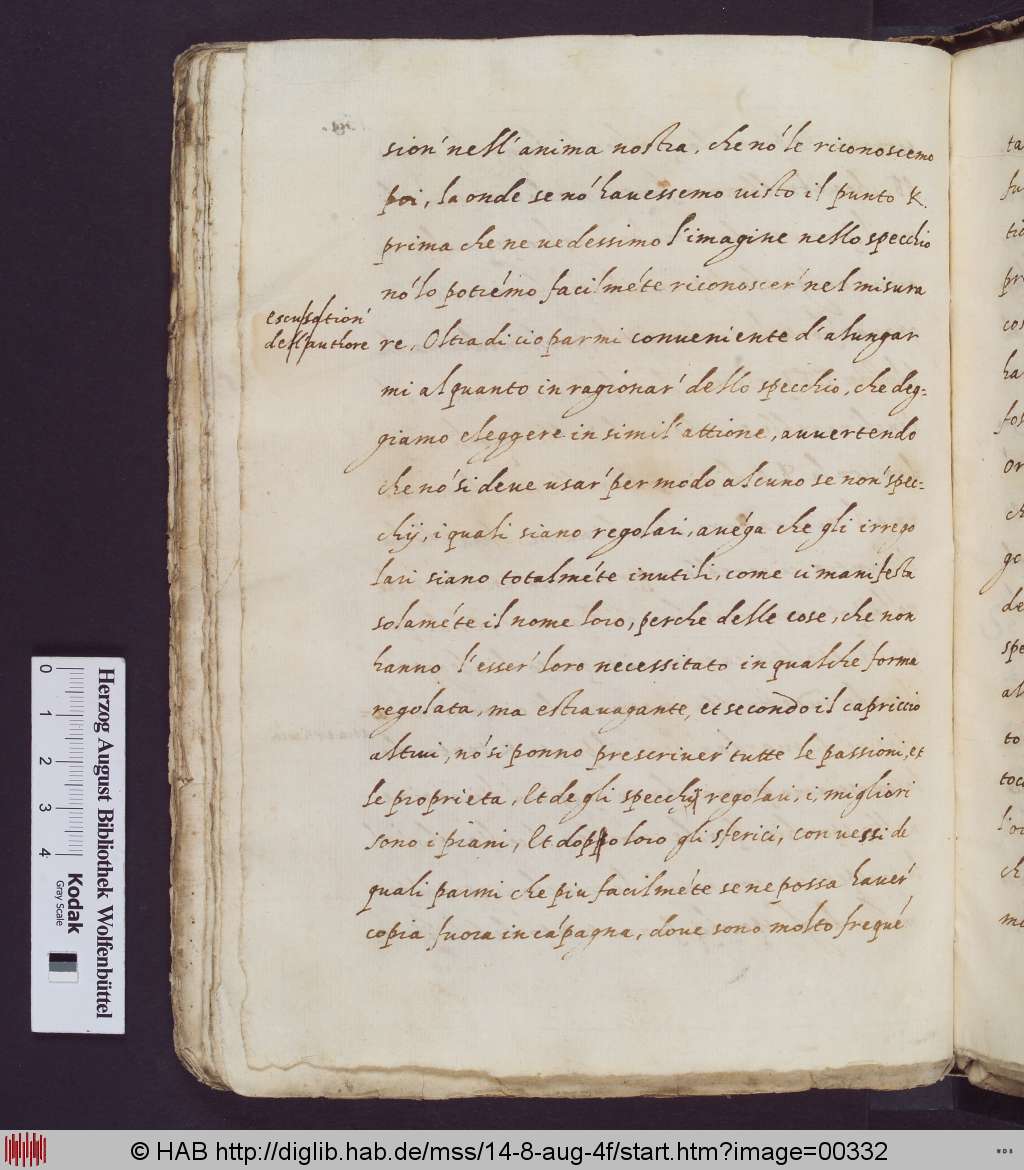 sion' nell'anima nostra, che nó le riconoscemo
poi, la onde se nó havessemo visto il punto K.
prima che ne vedessimo l'imagine nello specchio
nó lo potrémo facilméte riconoscer' nel misura
escusation'
dell'authore
re, Oltra di cio parmi conveniente d'alungar
mi alquanto in ragionar' dello specchio, che deg=
giamo eleggere in simil'attione, avvertendo
che nó si deve usar' per modo alcuno se non' spec=
chij, i quali siano regolari, avéga che gli irrego
lari siano totalméte inutili, come ci manifesta
solaméte il nome loro, perche delle cose, che non
hanno l'esser' loro necessitato in qualche forma
regolata, ma estravagante, et secondo il capriccio
altrui, nó si ponno prescriver' tutte le passioni, et
le proprieta, Et de gli specchij regolari, i, migliori
sono i piani, Et doppo loro gli sferici, convessi de
quali parmi che piu facilméte se ne possa haver'
copia fuora in cápagna, dove sono molto frequé
ta
fu
pr
cos
ha
fos
or
ch
ge
de
spe
al
to
toc
l'o
ch
mi
0 1 2 3 4
Herzog August Bibliothek Wolfenbüttel
Kodak
Gray Scale
© HAB http://diglib.hab.de/mss/14-8-aug-4f/start.htm?image=00332